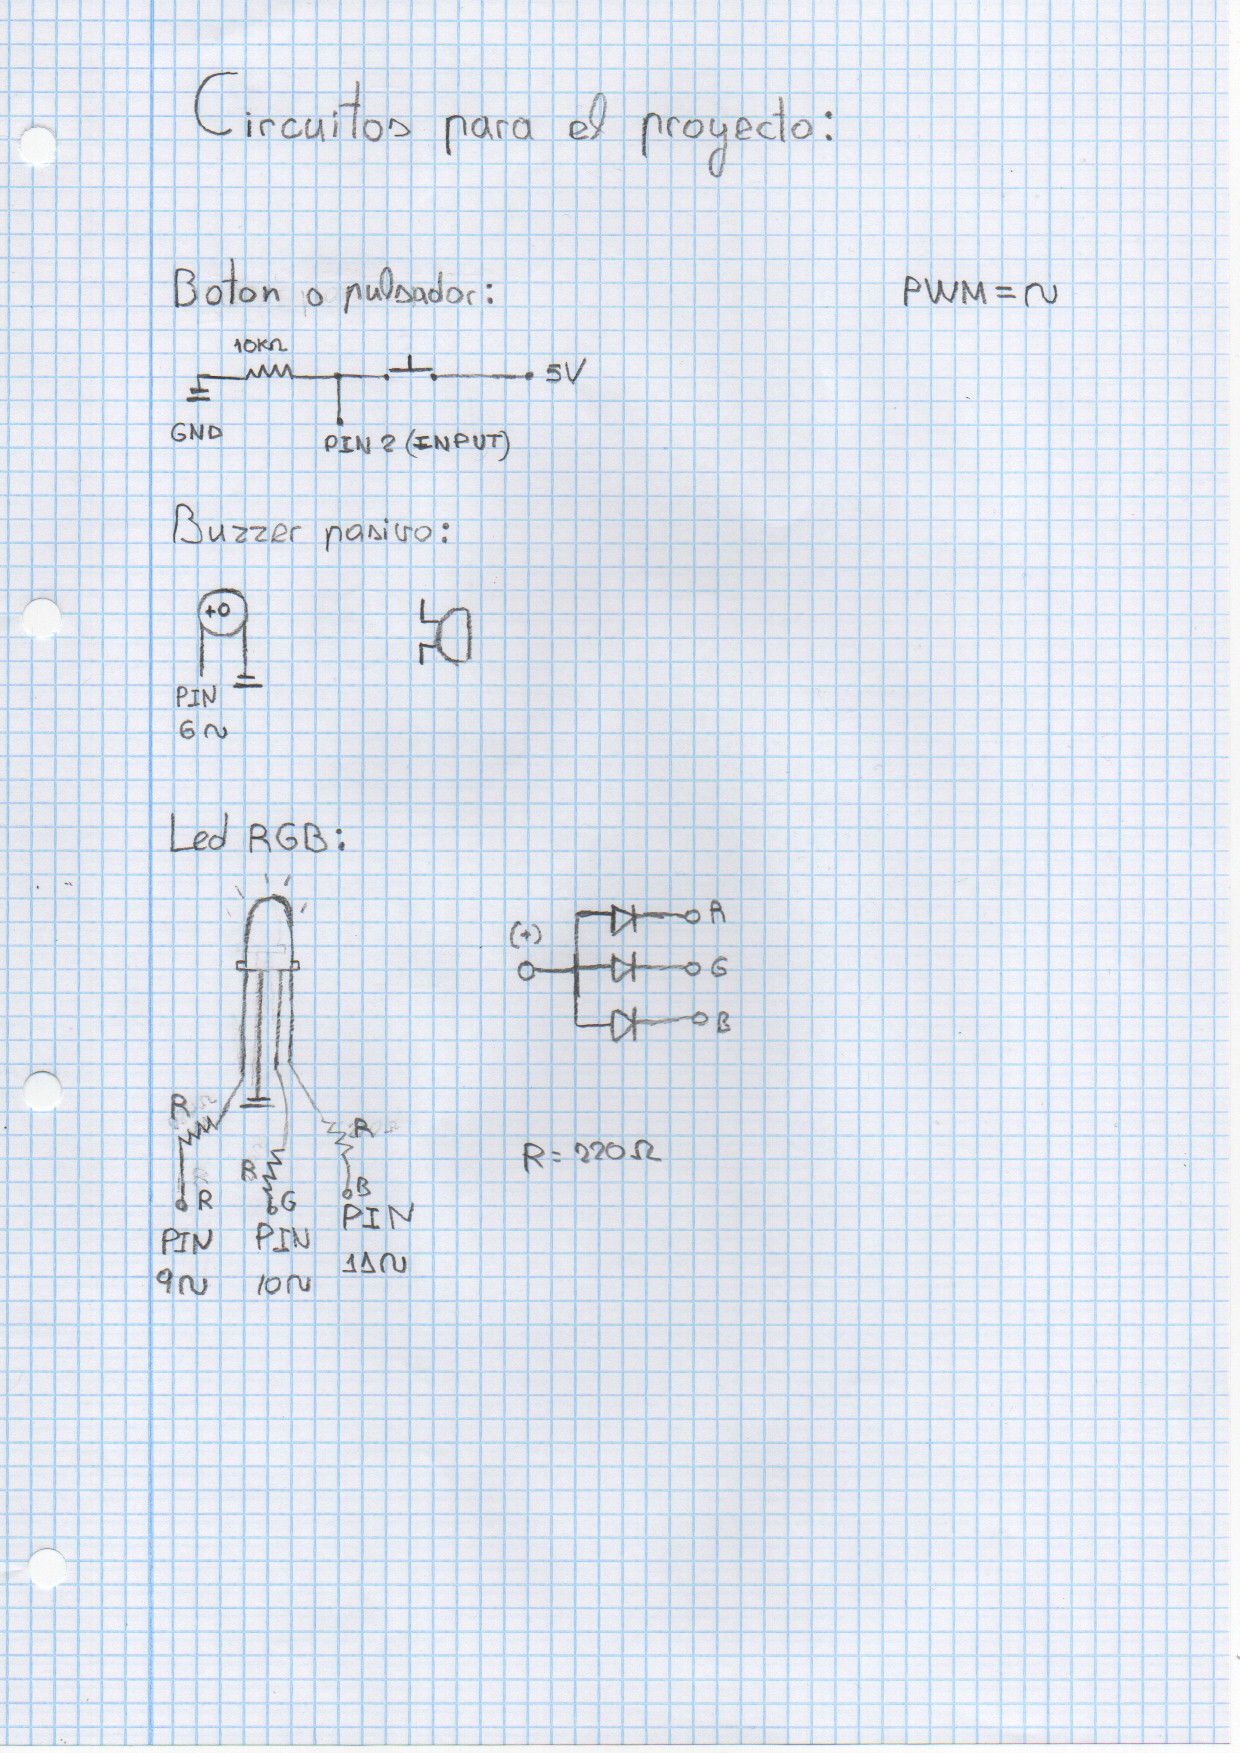 Circuitos para el proyecto:
Boton o pulsador:
PWM = ~
10KΩ
5V
GND
PIN 2 (INPUT)
Buzzer pasivo:
+
PIN
6~
Led RGB:
(+)
R
G
B
R
R
R
R = 220Ω
R
G
B
PIN
PIN
PIN
9~
10~
11~